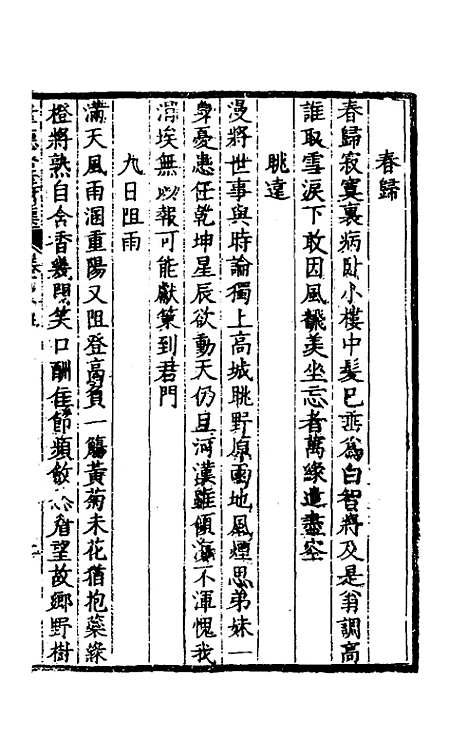 春歸
春歸寂寞裏病臥小樓中髮已垂爲白智將及是翁調高
誰取雪淚下敢因風羨坐忘者萬緣遣盡空
眺遠
漫將世事與時論獨上高城眺野原兩地風煙思弟妹一
身憂患任乾坤星辰欲動天仍旦河漢雖傾海不渾愧我
涓埃無以報可能獻策到君門
九日阻雨
滿天風雨溷重陽又阻登高負一觴黃菊未花猶抱蘂綠
橙將熟自含香幾開笑口酬佳節頻斂眉望故鄉野樹